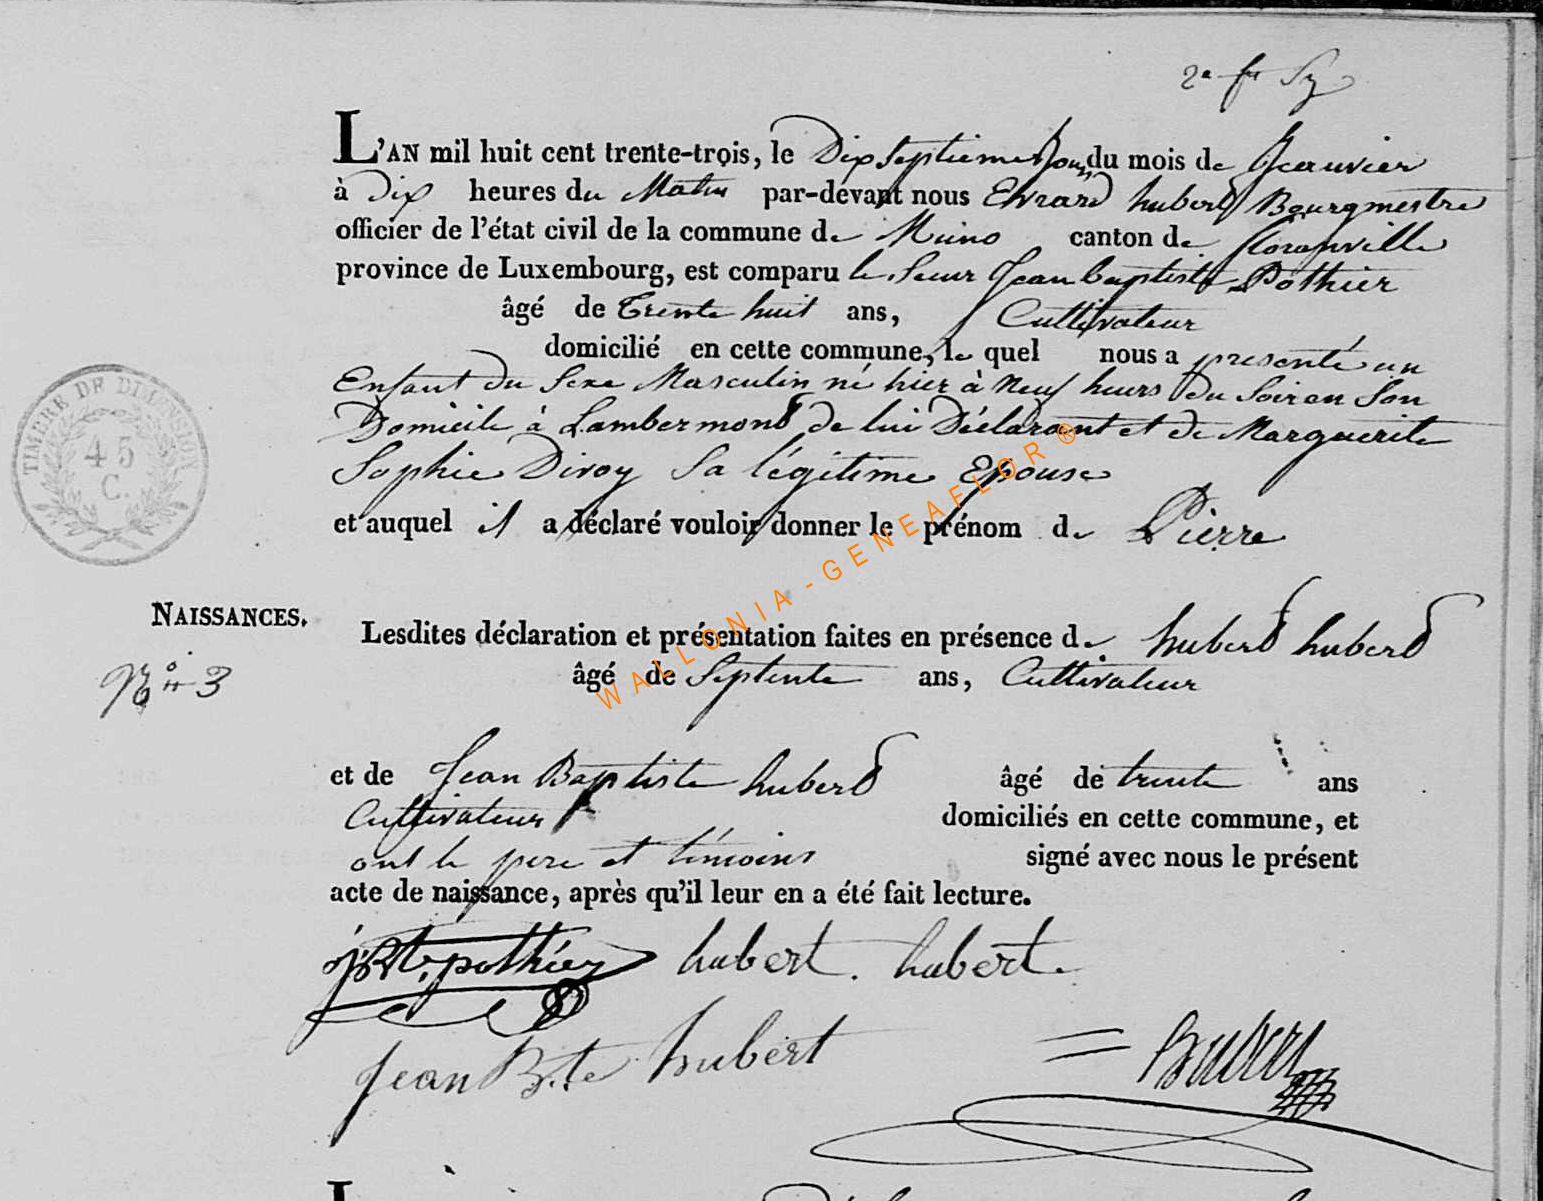 L'AN mil huit cent trente-trois, le Dix Septieme Jour du mois de Jeanvier
à Dix heures du Matin par-devant nous Evrard hubert Bourgmestre
officier de l'état civil de la commune de Muno canton de floranville
province de Luxembourg, est comparu le Sieur Jean baptiste Pothier
âgé de Trente huit ans, Cultivateur
domicilié en cette commune, le quel nous a presenté un
Enfant du Sexe Masculin né hier à Neuf heurs du Soir en Son
Domicile à Lambermont de lui Déclarant et de Marguerite
Sophie Diroy Sa légitime Epouse
et auquel il a déclaré vouloir donner le prénom de Pierre
TIMBRE DE DIMENSION
45
C.
NAISSANCES.
N° 3
Lesdites déclaration et présentation faites en présence de huberd huberd
âgé de Septente ans, Cultivateur
et de Jean Baptiste huberd âgé de trente ans
Cultivateur domiciliés en cette commune, et
ont le pere et témoins signé avec nous le présent
acte de naissance, après qu'il leur en a été fait lecture.
jBte pothier hubert . hubert
Jean Bte hubert = hubert
WALLONIA-GENEAFLOR®